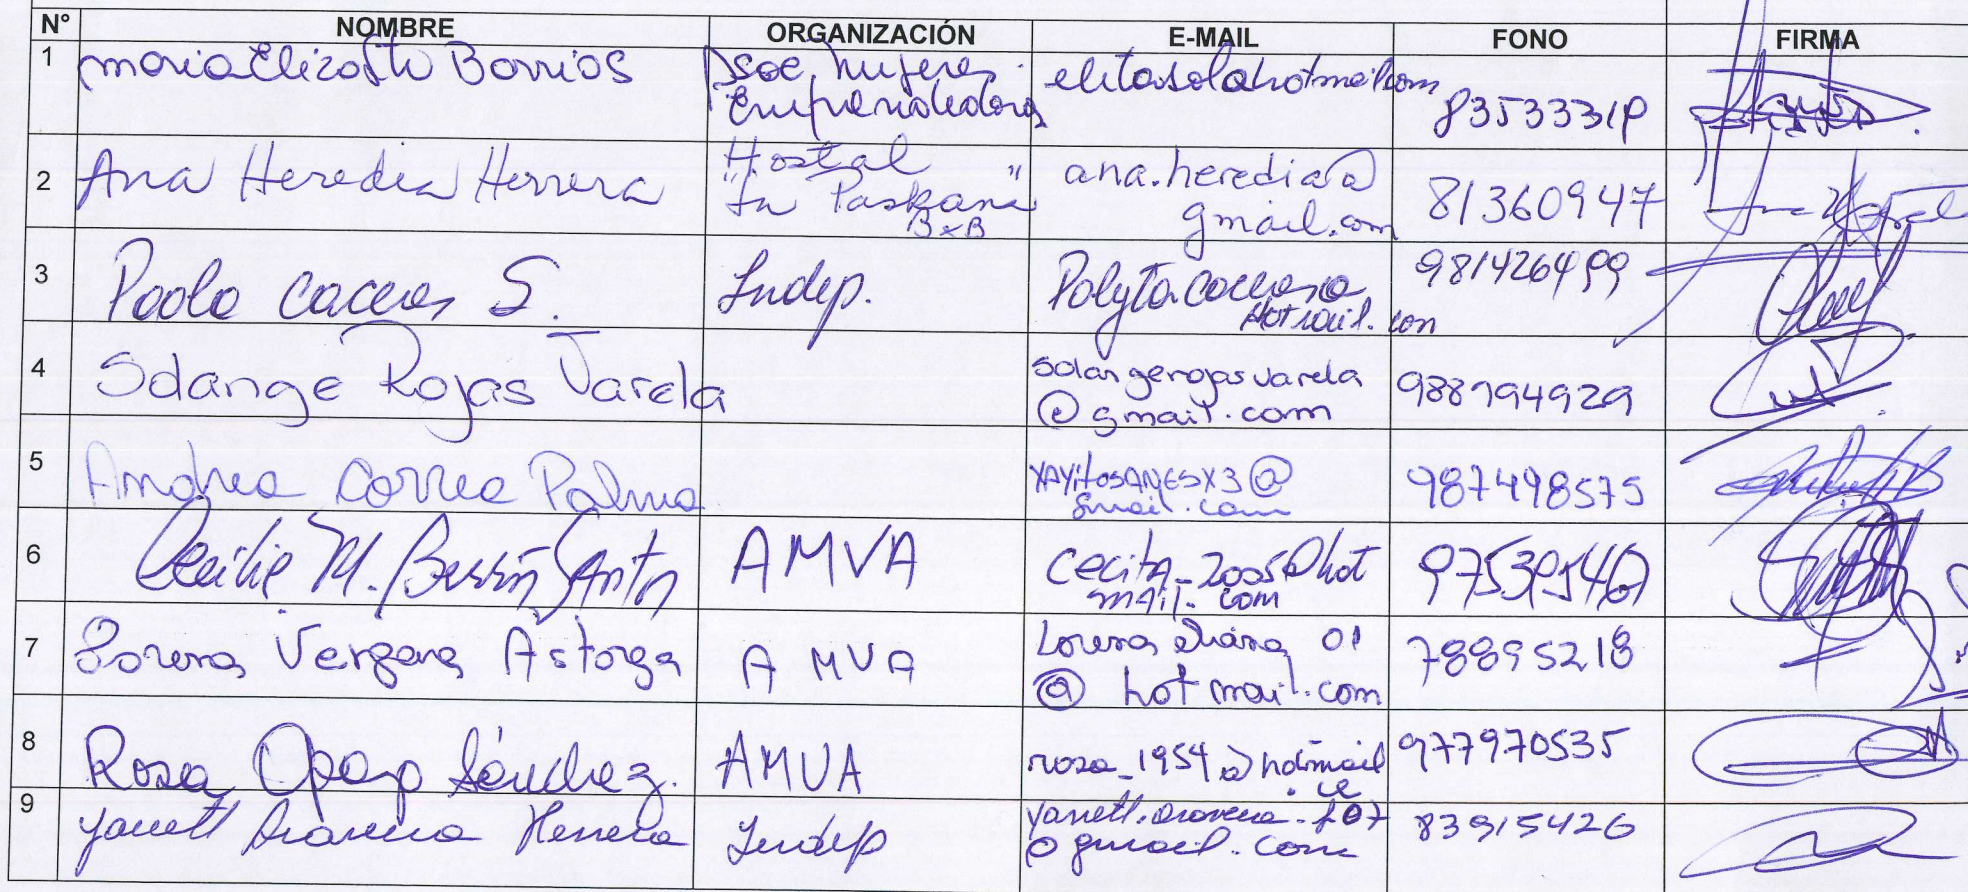 N° NOMBRE ORGANIZACIÓN E-MAIL FONO FIRMA
1 maria Elizabeth Barrios Asoc. Mujeres Emprendedoras 8353331P
2 Ana Heredia Herrera "Hostal La Paskana" BxB ana.heredia@gmail.com 81360947
3 Paola Caceres S. Indep. 981426499
4 Solange Rojas Varela solangerojasvarela@gmail.com 988794929
5 Andrea Correa Palma XAYITOSANESX3@gmail.com 987498575
6 Cecilia M. AMVA cecita_2005@hotmail.com
7 Lorena Vergara Astorga AMVA @hotmail.com 78895218
8 Rosa Opazo Sánchez. AMUA rosa_1954@hotmail 977970535
9 Yanett Aravena Herrera Indep @gmail.com 83915426